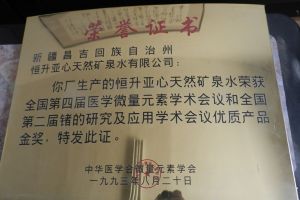 荣誉证书
新疆昌吉回族自治州
恒升亚心天然矿泉水有限公司：
你厂生产的恒升亚心天然矿泉水荣获
全国第四届医学微量元素学术会议和全国
第二届锗的研究及应用学术会议优质产品
金奖，特发此证。
中华医学会微量元素学会
一九九三年八月二十日